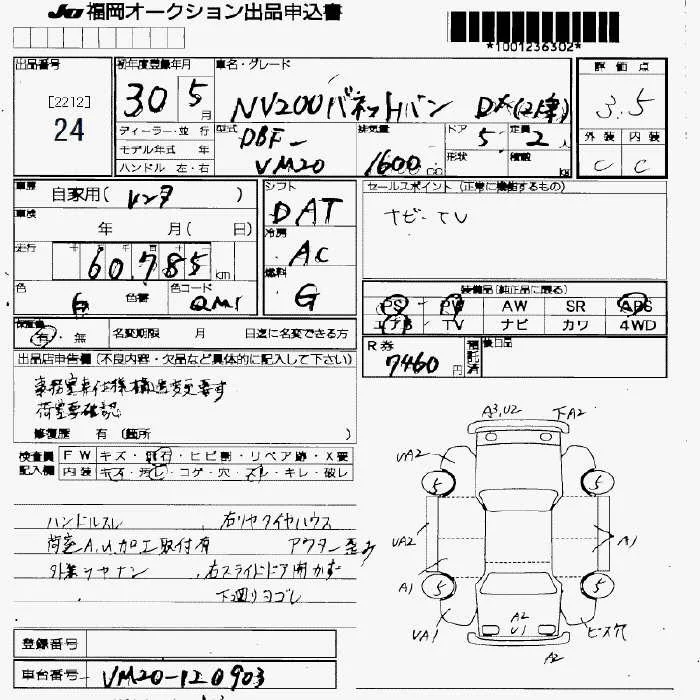 JU 福岡オークション出品申込書
*1001236302*
出品番号
[2212]
24
初年度登録年月
30 5月
車名・グレード
NV200バネットバン DX(2席)
評価点
3.5
外装 内装
C C
ディーラー・並 行
モデル年式 年
ハンドル 左・右
型式
DBF-
VM20
排気量
1600 cc
ドア
5
定員
2人
形状
積載
kg
車歴
自家用(レンタ)
車検
年 月( 日)
走行
60,785 km
色
色替
色コード
QM1
シフト
DAT
冷房
AC
燃料
G
セールスポイント (正常に機能するもの)
ナビ-TV
装備品(純正品に限る)
PS PW AW SR ABS
エアB TV ナビ カワ 4WD
有・無
名変期限 月 日迄に名変できる方
R券
7460円
預託済
後日品
出品店申告欄(不良内容・欠品など具体的に記入して下さい)
事務室車仕様構造変更要す
荷室要確認
修復歴 有 (箇所 )
検査員記入欄
FW キズ・飛石・ヒビ割・リペア跡・X要
内装 キズ・汚レ・コゲ・穴・スレ・キレ・破レ
ハンドルスレ 右リヤタイヤハウス
荷室A.U.加工取付有 アウター歪み
右スライドドア開かず
下廻りヨゴレ
A3,U2 下A2
UA2
5 5
UA2 A1
A1
5 5
UA1
A2
U1
ビス穴
A2
登録番号
車台番号 VM20-120903